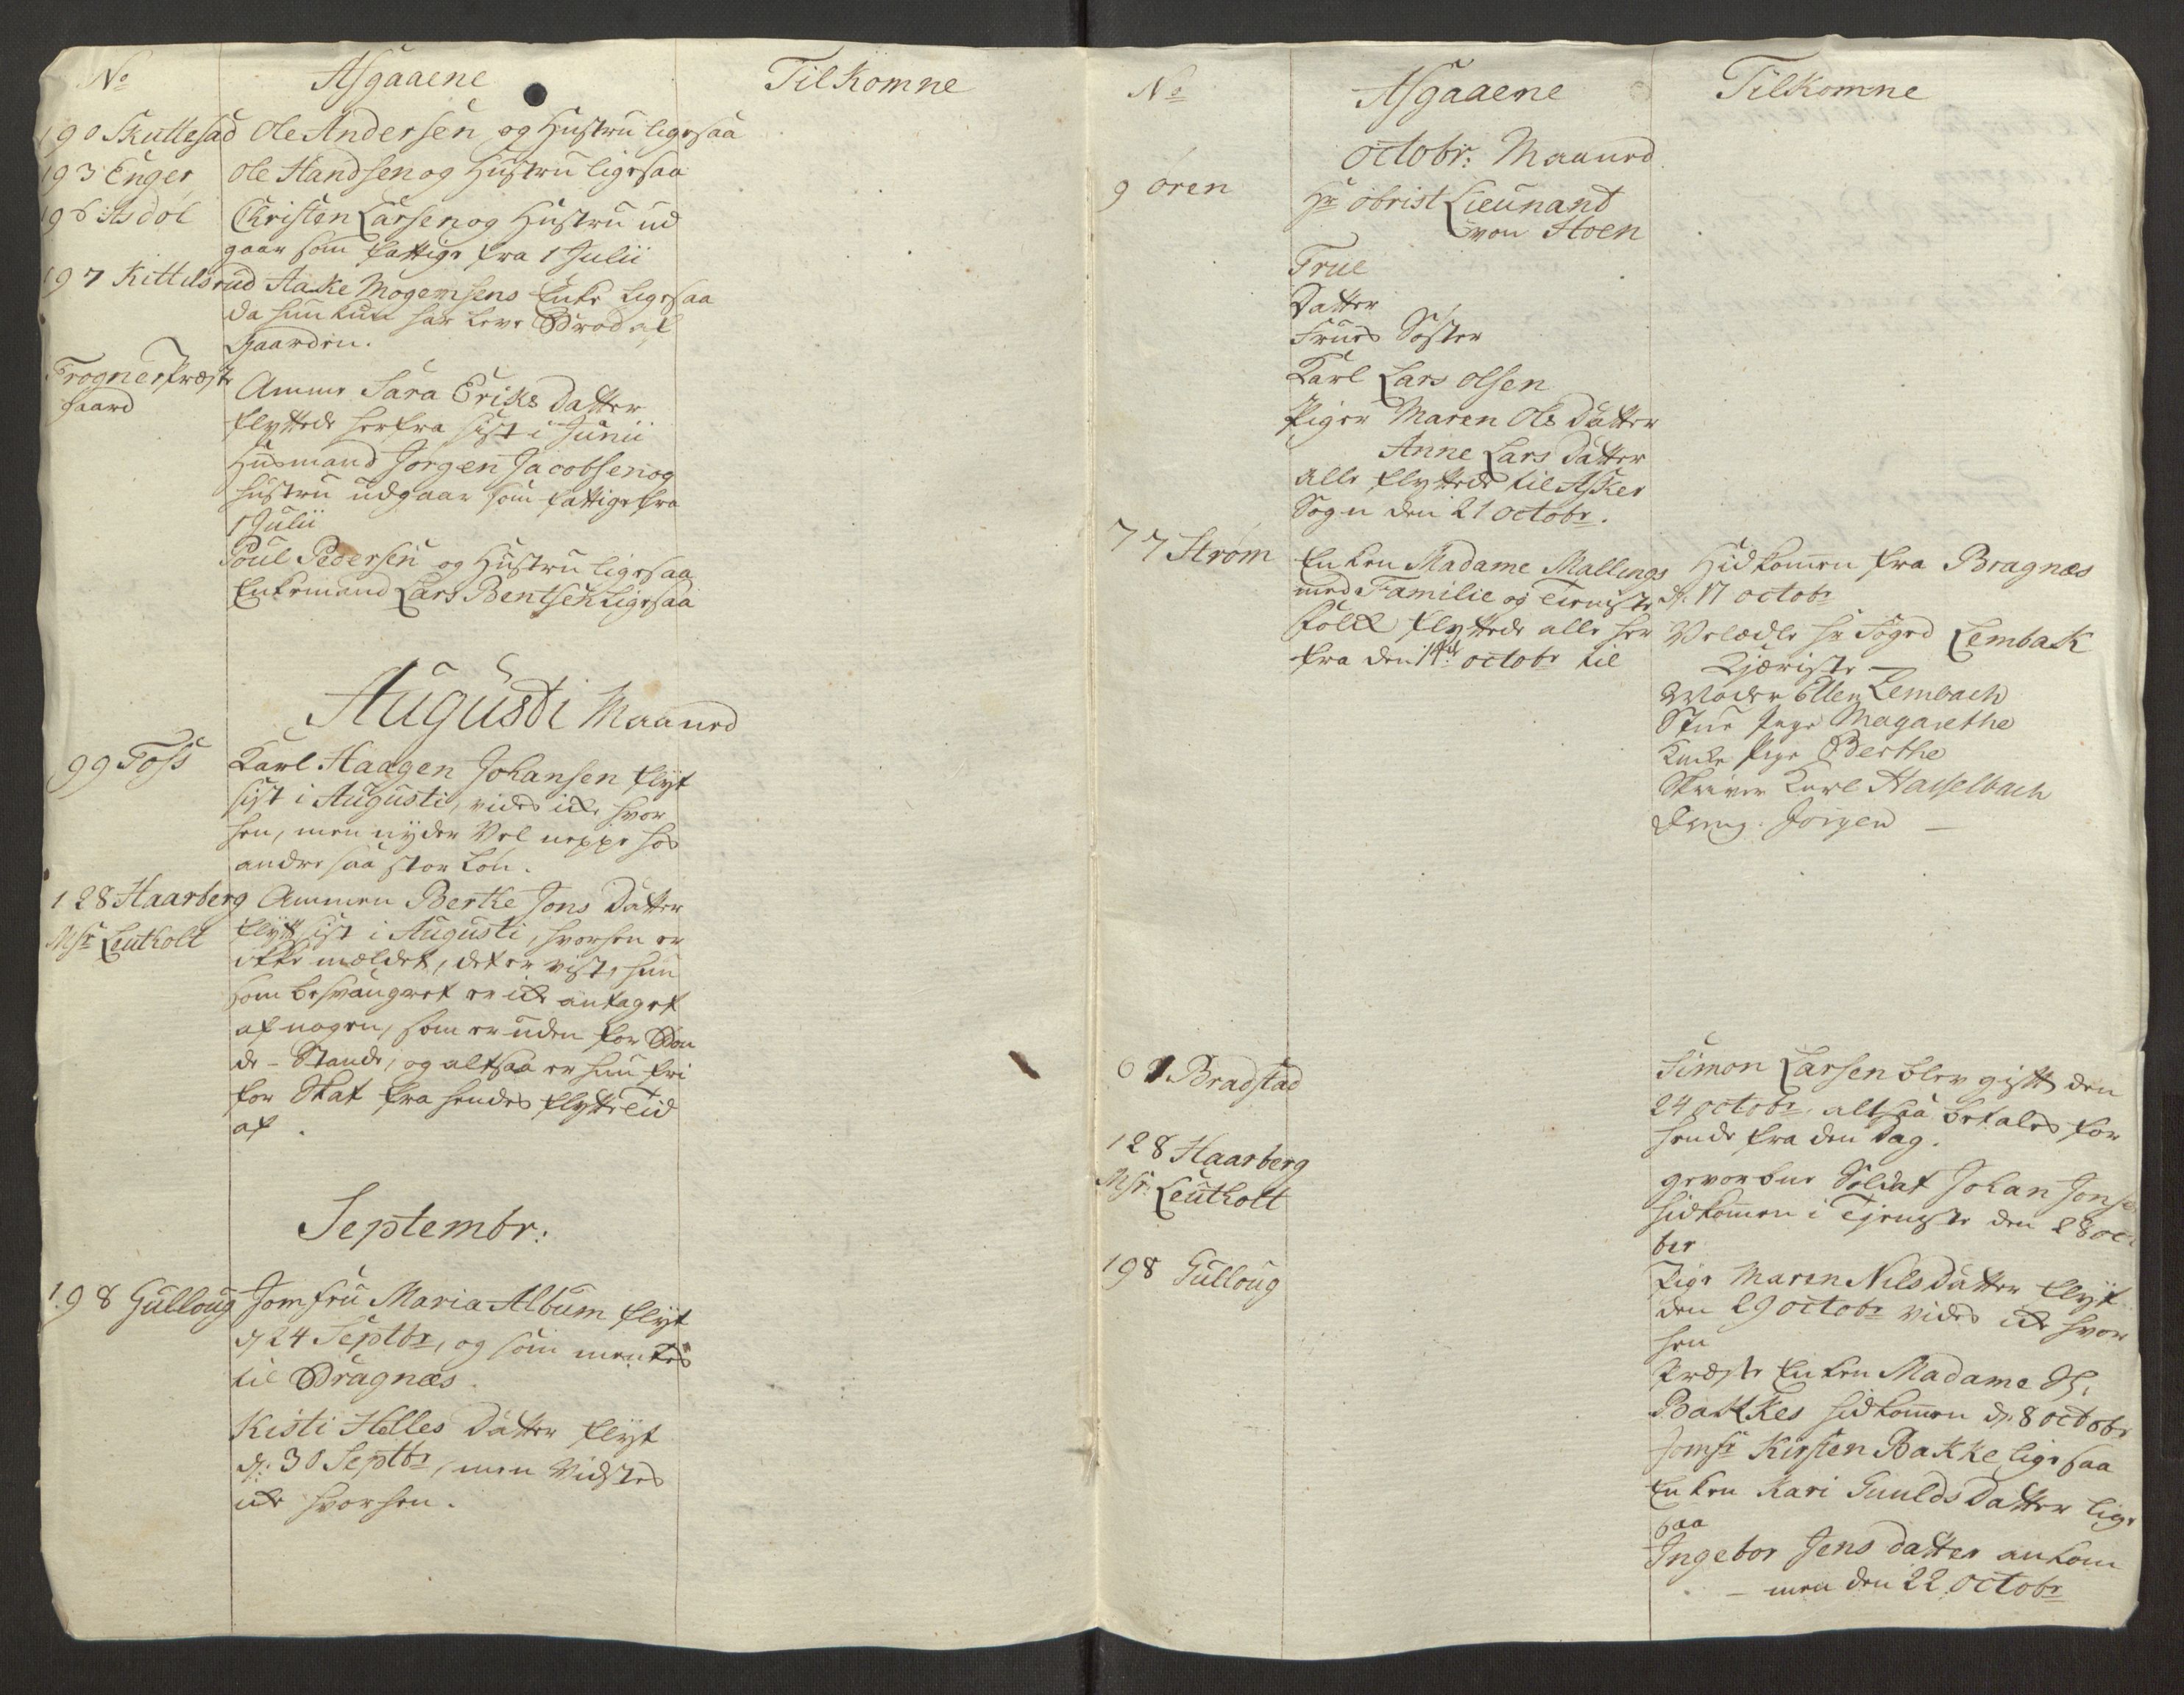 No
Afgaaene
Tilkomne
190 Skullestad Ole Andersen og Hustru ligesaa
193 Enger Ole Handsen og Hustru ligesaa
196 Asdøl Christen Larsen og Hustru ud
gaar som fattige fra 1 Julii
197 Kittilsrud Aake Mogensens Enke ligesaa
da hun kun har leve Brød af
Gaarden.
Frogner Præste
gaard
Amme Sara Eriks Datter
flyttede herfra sist i Junii
Husmand Jørgen Jacobsen og
Hustru udgaar som fattige fra
1 Julii
Poul Pedersen og Hustru ligesaa
Enkemand Lars Bentsen Ligesaa
Augusti Maaned
99 Foss Karl Haagen Johansen flyt
sist i Augusti, vides ikke hvor
hen, men nyder Vel neppe hos
andre saa stor Løn.
128 Haarberg Ammen Berthe Jons Datter
Msr Leutholt flytt sist i Augusti, hvorhen er
ikke meldet, det er vist, hun
som besvangret er ikke antaget
af nogen, som er uden for Bon
de-Stande, og altsaa er hun fri
for Skat fra hendes flytte Tid
af.
Septembr:
198 Gulloug Jomfru Maria Album flyt
d. 24 Septbr, og som mentes
til Bragnæs
Kisti Helles Datter flyt
d: 30 Septbr, men Vidstes
ikke hvorhen.
No
Afgaaene
Tilkomne
Octobr: Maaned
9 Ören Hr Obrist Lieunant
von Hoen
Frue
Datter
Frues Søster
Karl Lars Olsen
Piger Maren Ols Datter
Anne Lars Datter
alle flyttede til Asker
Sogn den 21 Octobr.
77 Strøm Enken Madame Mallings
med Familie og Tieniste
Folk flyttede alle her
fra den 14de Octobr til
Hidkommen fra Bragnæs
d. 17 Octobr
Velædle Hr Foged Lembak
Kjæriste
Moder Ellen Lembach
Stue Pige Magarethe
Kukke Pige Berthe
Skriver Karl Hasselbach
Dreng. Jörgen
61 Bradstad
Simon Larsen blev gift den
24 Octobr, altsaa betales for
hende fra den Dag.
128 Haarberg
Msr: Leutholt
gevorbne Soldat Johan Jonse
hidkommen i Tjeneste den 28 oc
ber
198 Gulloug
Pige Maren Nils Datter flyt
den 29 Octobr vides ikke hvor
hen
Præste Enken Madame
Bakkes hidkommen d. 8 Octobr
Jomfr Kirsten Bakke ligesaa
Enken Kari Guulds Datter lige
saa
Ingebor Jens datter ankom
men den 22 Octobr